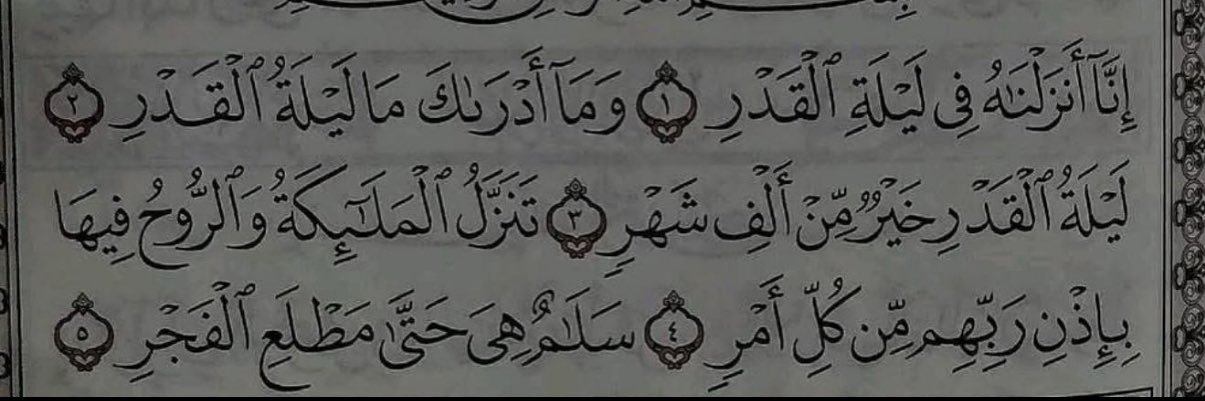 إِنَّآ أَنزَلْنَٰهُ فِى لَيْلَةِ ٱلْقَدْرِ ١ وَمَآ أَدْرَىٰكَ مَا لَيْلَةُ ٱلْقَدْرِ ٢
لَيْلَةُ ٱلْقَدْرِ خَيْرٌ مِّنْ أَلْفِ شَهْرٍ ٣ تَنَزَّلُ ٱلْمَلَٰٓئِكَةُ وَٱلرُّوحُ فِيهَا
بِإِذْنِ رَبِّهِم مِّن كُلِّ أَمْرٍ ٤ سَلَٰمٌ هِىَ حَتَّىٰ مَطْلَعِ ٱلْفَجْرِ ٥